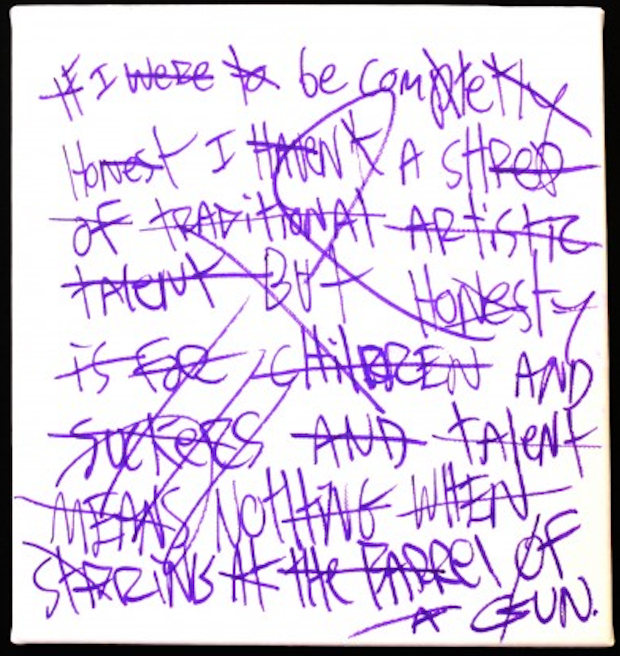 If I WERE to be completly
HonesT I HAVEN'T A SHRED
OF TRADITIONAL ARTISTIC
talenT BUT HonesTy
is FOR CHiLDREN AND
SUCKERS AND talenT
MEANS NOTHING WHEN
STARING At the BARREl OF
A GUN.